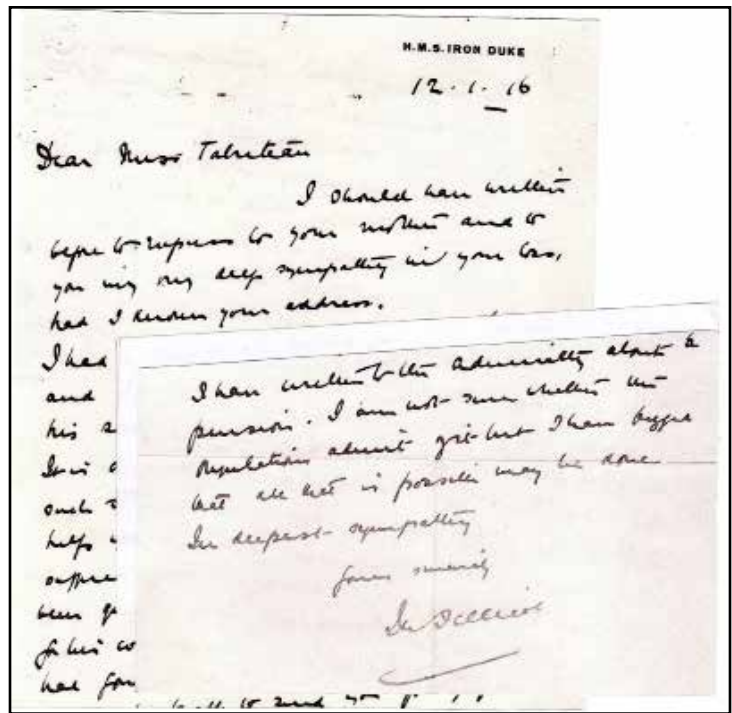 H.M.S. IRON DUKE
12.1.16
Dear Miss
I should have written
before to express to your mother and to
you my deep sympathy in your loss,
had I known your address.
I had
and
his a
It is
such
helps
suffre
been
for his co
had
to send you
I have written to the Admiralty about a
pension. I am not sure whether the
regulations admit of it but I have begged
that all that is possible may be done
In deepest sympathy
Yours sincerely